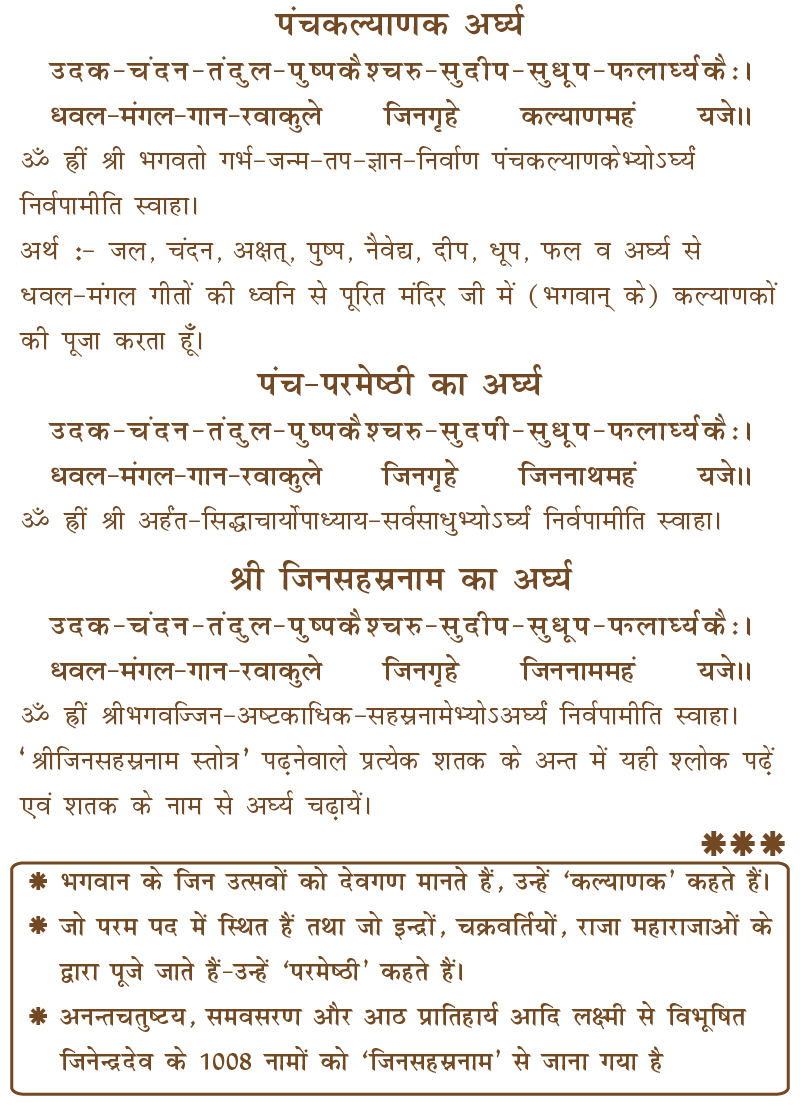 पंचकल्याणक अर्घ्य
उदक-चंदन-तंदुल-पुष्पकैश्चरु-सुदीप-सुधूप-फलार्घ्यकै:।
धवल-मंगल-गान-रवाकुले जिनगृहे कल्याणमहं यजे॥
ॐ ह्रीं श्री भगवतो गर्भ-जन्म-तप-ज्ञान-निर्वाण पंचकल्याणकेभ्योऽर्घ्यं
निर्वपामीति स्वाहा।
अर्थ :- जल, चंदन, अक्षत्, पुष्प, नैवेद्य, दीप, धूप, फल व अर्घ्य से
धवल-मंगल गीतों की ध्वनि से पूरित मंदिर जी में (भगवान् के) कल्याणकों
की पूजा करता हूँ।
पंच-परमेष्ठी का अर्घ्य
उदक-चंदन-तंदुल-पुष्पकैश्चरु-सुदपी-सुधूप-फलार्घ्यकै:।
धवल-मंगल-गान-रवाकुले जिनगृहे जिननाथमहं यजे॥
ॐ ह्रीं श्री अर्हंत-सिद्धाचार्योपाध्याय-सर्वसाधुभ्योऽर्घ्यं निर्वपामीति स्वाहा।
श्री जिनसहस्रनाम का अर्घ्य
उदक-चंदन-तंदुल-पुष्पकैश्चरु-सुदीप-सुधूप-फलार्घ्यकै:।
धवल-मंगल-गान-रवाकुले जिनगृहे जिननाममहं यजे॥
ॐ ह्रीं श्रीभगवज्जिन-अष्टकाधिक-सहस्रनामेभ्योऽअर्घ्यं निर्वपामीति स्वाहा।
‘श्रीजिनसहस्रनाम स्तोत्र’ पढ़नेवाले प्रत्येक शतक के अन्त में यही श्लोक पढ़ें
एवं शतक के नाम से अर्घ्य चढ़ायें।
❋❋❋
❋ भगवान के जिन उत्सवों को देवगण मानते हैं, उन्हें ‘कल्याणक’ कहते हैं।
❋ जो परम पद में स्थित हैं तथा जो इन्द्रों, चक्रवर्तियों, राजा महाराजाओं के
द्वारा पूजे जाते हैं-उन्हें ‘परमेष्ठी’ कहते हैं।
❋ अनन्तचतुष्टय, समवसरण और आठ प्रातिहार्य आदि लक्ष्मी से विभूषित
जिनेन्द्रदेव के 1008 नामों को ‘जिनसहस्रनाम’ से जाना गया है